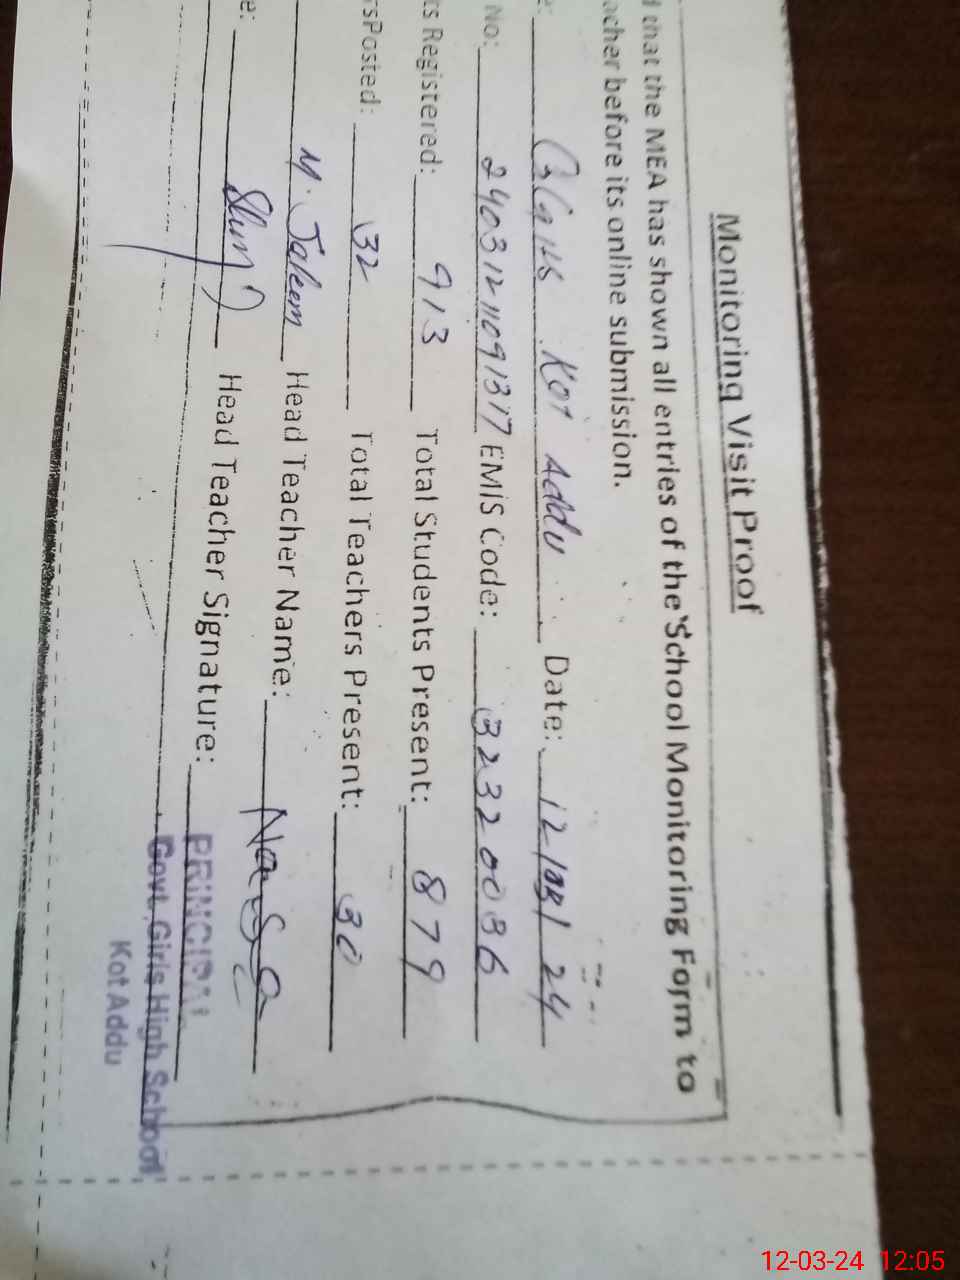 Monitoring Visit Proof
that the MEA has shown all entries of the School Monitoring Form to
acher before its online submission.
e: GGHS Kot Addu Date: 12/03/24
No: 24031211091317 EMIS Code: 32320036
ts Registered: 913 Total Students Present: 879
rsPosted: 32 Total Teachers Present: 30
M. Jaleem Head Teacher Name:
e: Head Teacher Signature:
PRINCIPAL
Govt. Girls High School
Kot Addu
12-03-24 12:05